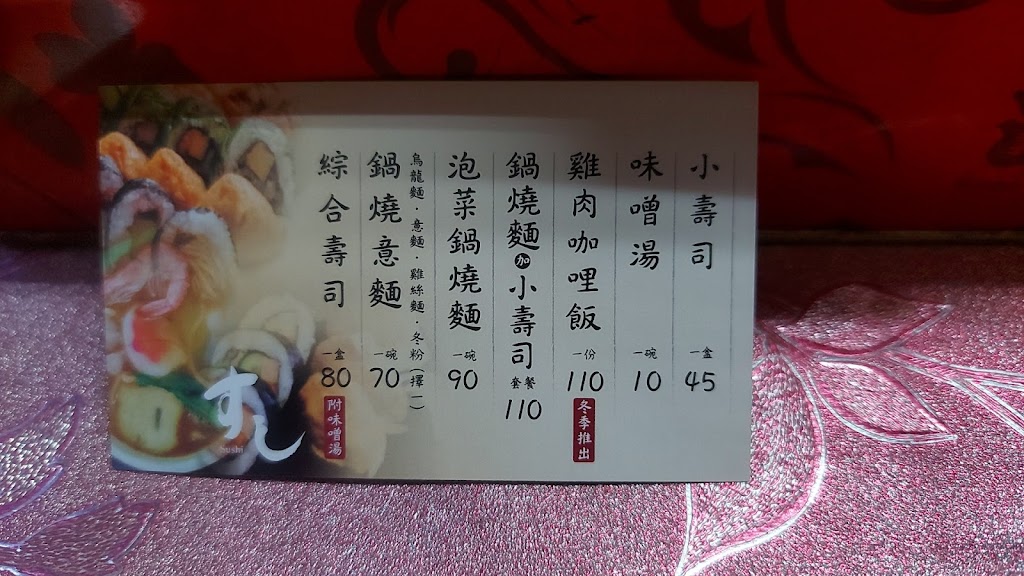 小壽司 一盒 45
味噌湯 一碗 10
雞肉咖哩飯 一份 110 冬季推出
鍋燒麵加小壽司 套餐 110
泡菜鍋燒麵 一碗 90
烏龍麵．意麵．雞絲麵．冬粉(擇一)
鍋燒意麵 一碗 70
綜合壽司 一盒 80 附味噌湯
すし
sushi